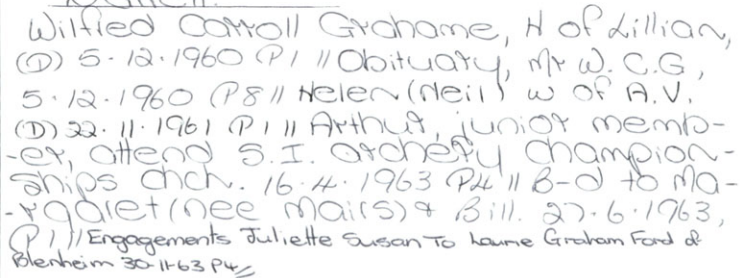 Wilfied Carroll Grahame, H of Lillian,
(D) 5.12.1960 (P1 // Obituary, Mr W. C.G,
5.12.1960 (P8 // Helen (Neil) w of A.V.
(D) 22.11.1961 (P1 // Arthur, junior memb-
-er, attend S.I. archery champion-
ships chch. 16.4.1963 P4 // B-d to Ma-
-rgaret (nee Mairs) & Bill. 27.6.1963,
(P1 // Engagements Juliette Susan To Laurie Graham Ford of
Blenheim 30-11-63 P4 //